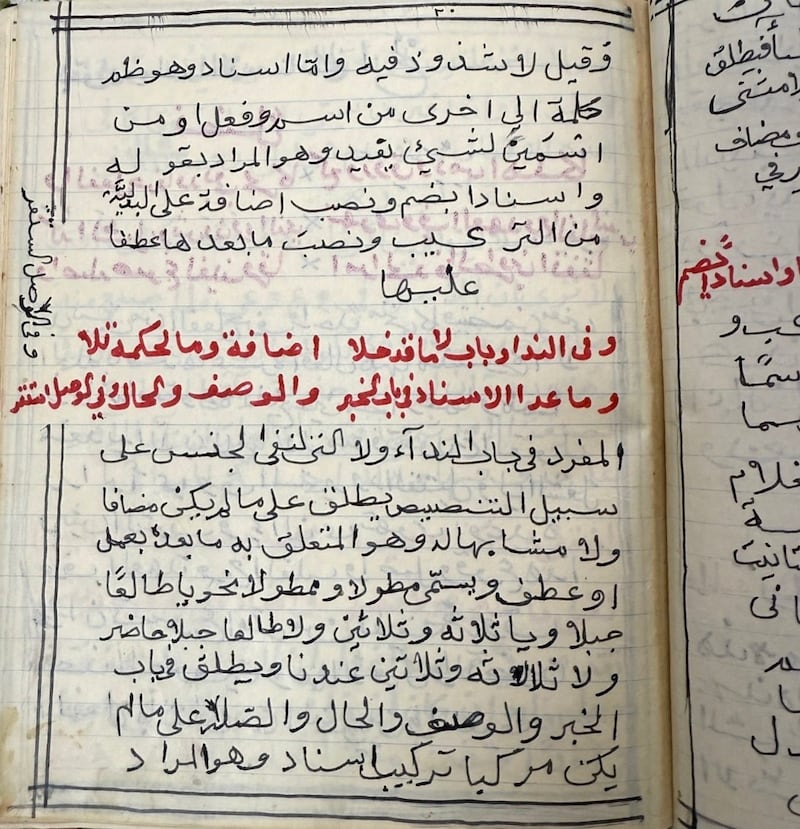 ٢٠
وقيل لا شذوذ فيه واما اسناد وهو ظم
كلمة الى اخرى من اسم وفعل او من
اسمين لشيئ يفيد وهو المراد بقوله
واسنادا بضم ونصب اضافة على البقية
من التركيب ونصب ما بعدها عطفا
عليها
وفى الندا وباب لا ما قد خلا اضافة وما لحكمه تلا
وما عدا الاسناد فى باب الخبر والوصف والحال وفي الوصل استقر
المفرد فى باب الندآء ولا التى لنفى الجنس على
سبيل التنصيص يطلق على ما لم يكن مضافا
ولا مشابها له وهو المتعلق به ما بعده بعمل
او عطف ويسمّى مطولا وممطولا نحو يا طالعًا
جبلا ويا ثلاثه وثلاثين ولا طالعا جبلا حاضر
ولا ثلاثه وثلاثين عندنا ويطلق فى باب
الخبر والوصف والحال والصلة على ما لم
يكن مركبا تركيب اسناد وهو المراد
وفى الوصل استقر
فيطلق
ومضاف
واسنادا بضم